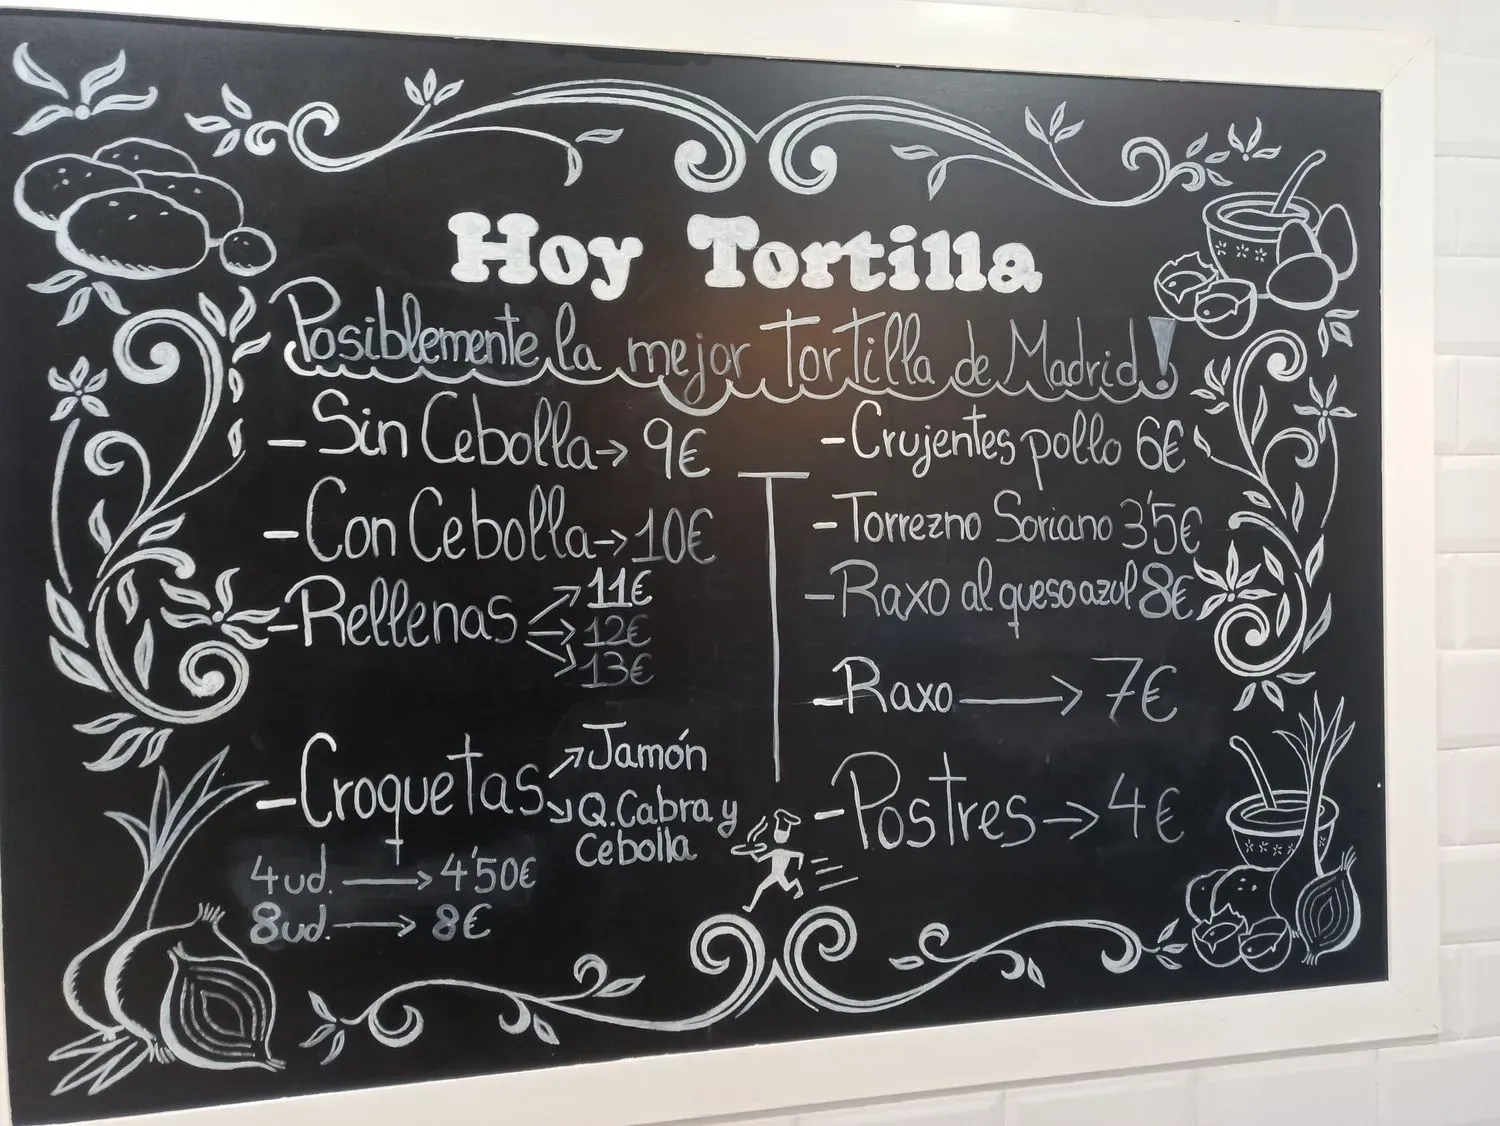 Hoy Tortilla
Posiblemente la mejor Tortilla de Madrid!
- Sin Cebolla → 9€
- Con Cebolla → 10€
- Rellenas → 11€
→ 12€
→ 13€
- Croquetas → Jamón
→ Q. Cabra y
Cebolla
4 ud. → 4'50€
8 ud. → 8€
- Crujentes pollo 6€
- Torrezno Soriano 3'5€
- Raxo al queso azul 8€
- Raxo → 7€
- Postres → 4€